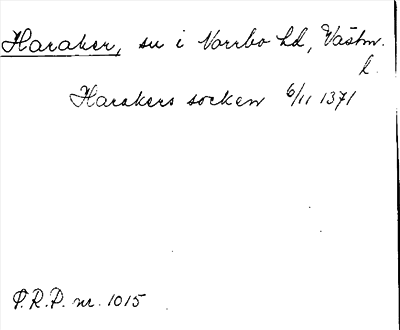 Haraker, sn i Norrbo hd, Västm.
l.
Harakers socken 6/11 1371
P.R.P. nr. 1015